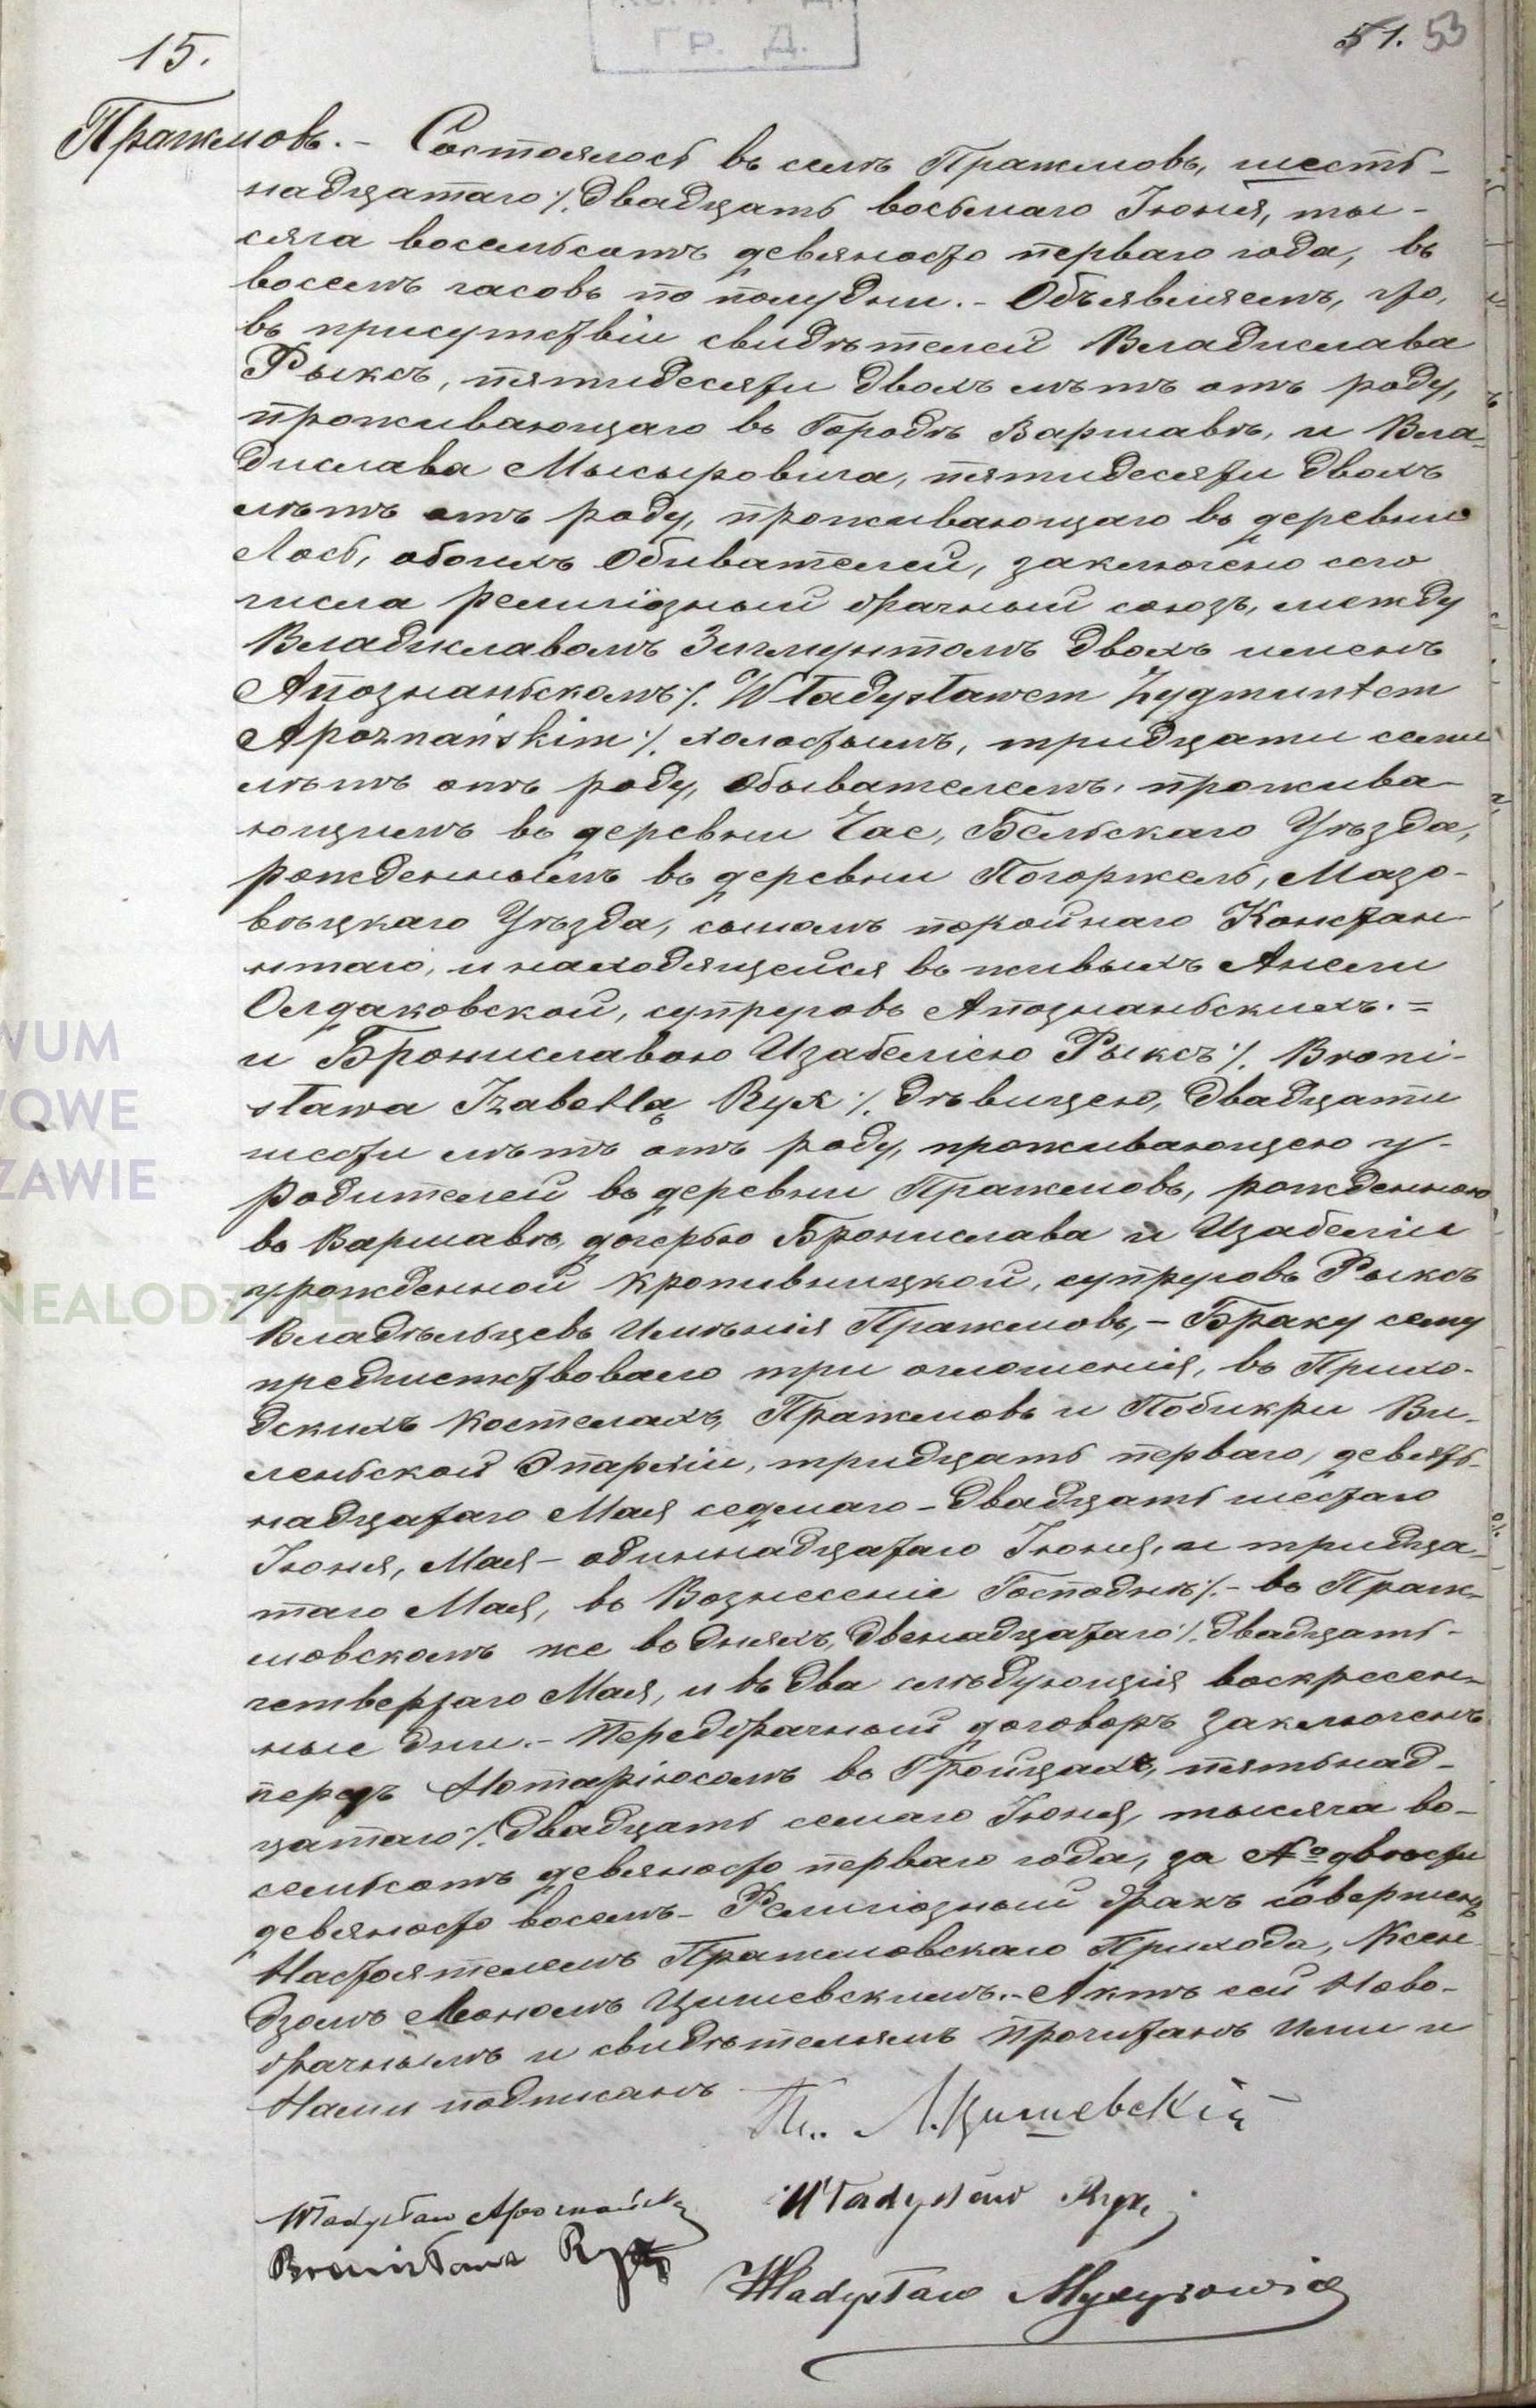 ГР. Д.
15.
51. 53
Пражмовъ. - Состоялось въ селѣ Пражмовъ, шест-
надцатаго /. двадцать восьмаго Іюня, ты-
сяча восемьсотъ девяносто перваго года, въ
восемь часовъ по полудни. - Объявляемъ, что,
въ присутствіи свидѣтелей Владислава
Рыксъ, пятидесяти двохъ лѣтъ отъ роду,
проживающаго въ Городѣ Варшавѣ, и Вла-
дислава Мысыровича, пятидесяти двохъ
лѣтъ отъ роду, проживающаго въ деревни
Лось, обоихъ Обивателей, заключено сего
числа религіозный брачный союзъ, между
Владиславомъ Зигмунтомъ двохъ именъ
Апознаньскомъ /. Władysławem Zygmuntem
Apoznańskim /. холостымъ, тридцати семи
лѣтъ отъ роду, Обывателемъ, прожива-
ющимъ въ деревни Чае, Бельскаго Уѣзда,
рожденнымъ въ деревни Погоржель, Мазо-
вѣцкаго Уѣзда, сыномъ покойнаго Констан-
нтаго, и находящейся въ живыхъ Анели
Олдаковской, супруговъ Апознаньскихъ. =
и Брониславою Изабеліею Рыксъ /. Broni-
sława Izabellą Ryx /. дѣвицею, двадцати
шести лѣтъ отъ роду, проживающею у-
родителей въ деревни Пражмовъ, рожденною
въ Варшавѣ, дочерью Бронислава и Изабеліи
урожденной Кропивницкой, супруговъ Рыксъ
Владѣльцевъ Имѣнія Пражмовъ, - Браку сему
предшествовало три оглошенія, въ Прихо-
дскихъ Костелахъ, Пражмовъ и Побикри Ви-
леньской Эпархіи, тридцать перваго, девят-
надцатаго Мая седмаго - двадцать шестаго
Іюня, Мая - одиннадцатаго Іюня, и тридца-
таго Мая, въ Вознесеніе Господнѣ /. - въ Праж-
мовскомъ же въ дняхъ, двенадцатаго /. двадцать-
четвертаго Мая, и въ два слѣдующія воскресен-
ные дни. - Передбрачный договоръ заключенъ
передъ Нотаріюсомъ въ Гройцахъ, пятьнад-
цатаго /. двадцать семаго Іюня, тысяча во-
семьсотъ девяносто перваго года, за № двѣсти
девяносто восемь - Религіозный бракъ совершенъ
Настоятелемъ Пражмовскаго Прихода, Ксен-
дзомъ Леономъ Цишевскимъ. - Актъ сей Ново-
брачнымъ и свидѣтелямъ прочитанъ Ими и
Нами подписанъ
Л. Цишевскій
Władysław Apoznański
Władysław Ryx
Bronisława Ryx
Władysław Mysyrowicz
WUM
WOWE
ZAWIE
NEALODZ.PL